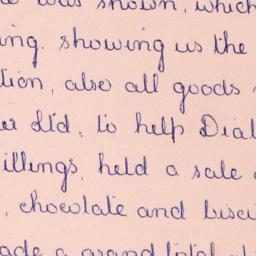 was shown, which
ing. showing us the
tion, also all goods
Ltd, to help Dial
illings, held a sale
, chocolate and bisci
ade a grand total